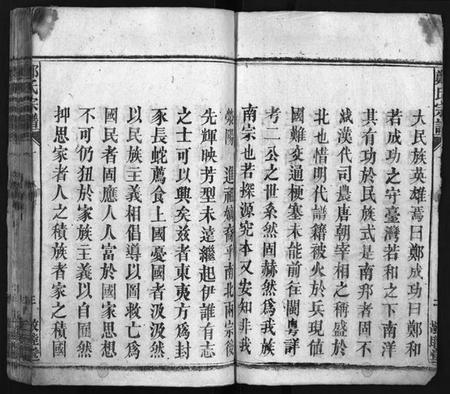 大民族英雄焉曰鄭成功曰鄭和
若成功之守臺灣若和之下南洋
其有功於民族式是南邦者固不
減漢代司農唐朝宰相之稱盛於
北也惜明代譜籍被火於兵現値
國難交通梗塞未能前往閩粵詳
考二公之世系然固赫然爲我族
南宗也若探源究本又安知非我
滎陽 遠祖嫡裔乎南北兩宗後
先輝映芳型未遠繼起伊誰有志
之士可以興矣茲者東夷方爲封
豕長蛇薦食上國憂國者汲汲然
以民族主義相倡導以圖救亡爲
國民者固應人人富於國家思想
不可仍狃於家族主義以自囿然
抑思家者人之積族者家之積國
鄭氏宗譜
鄭氏宗譜